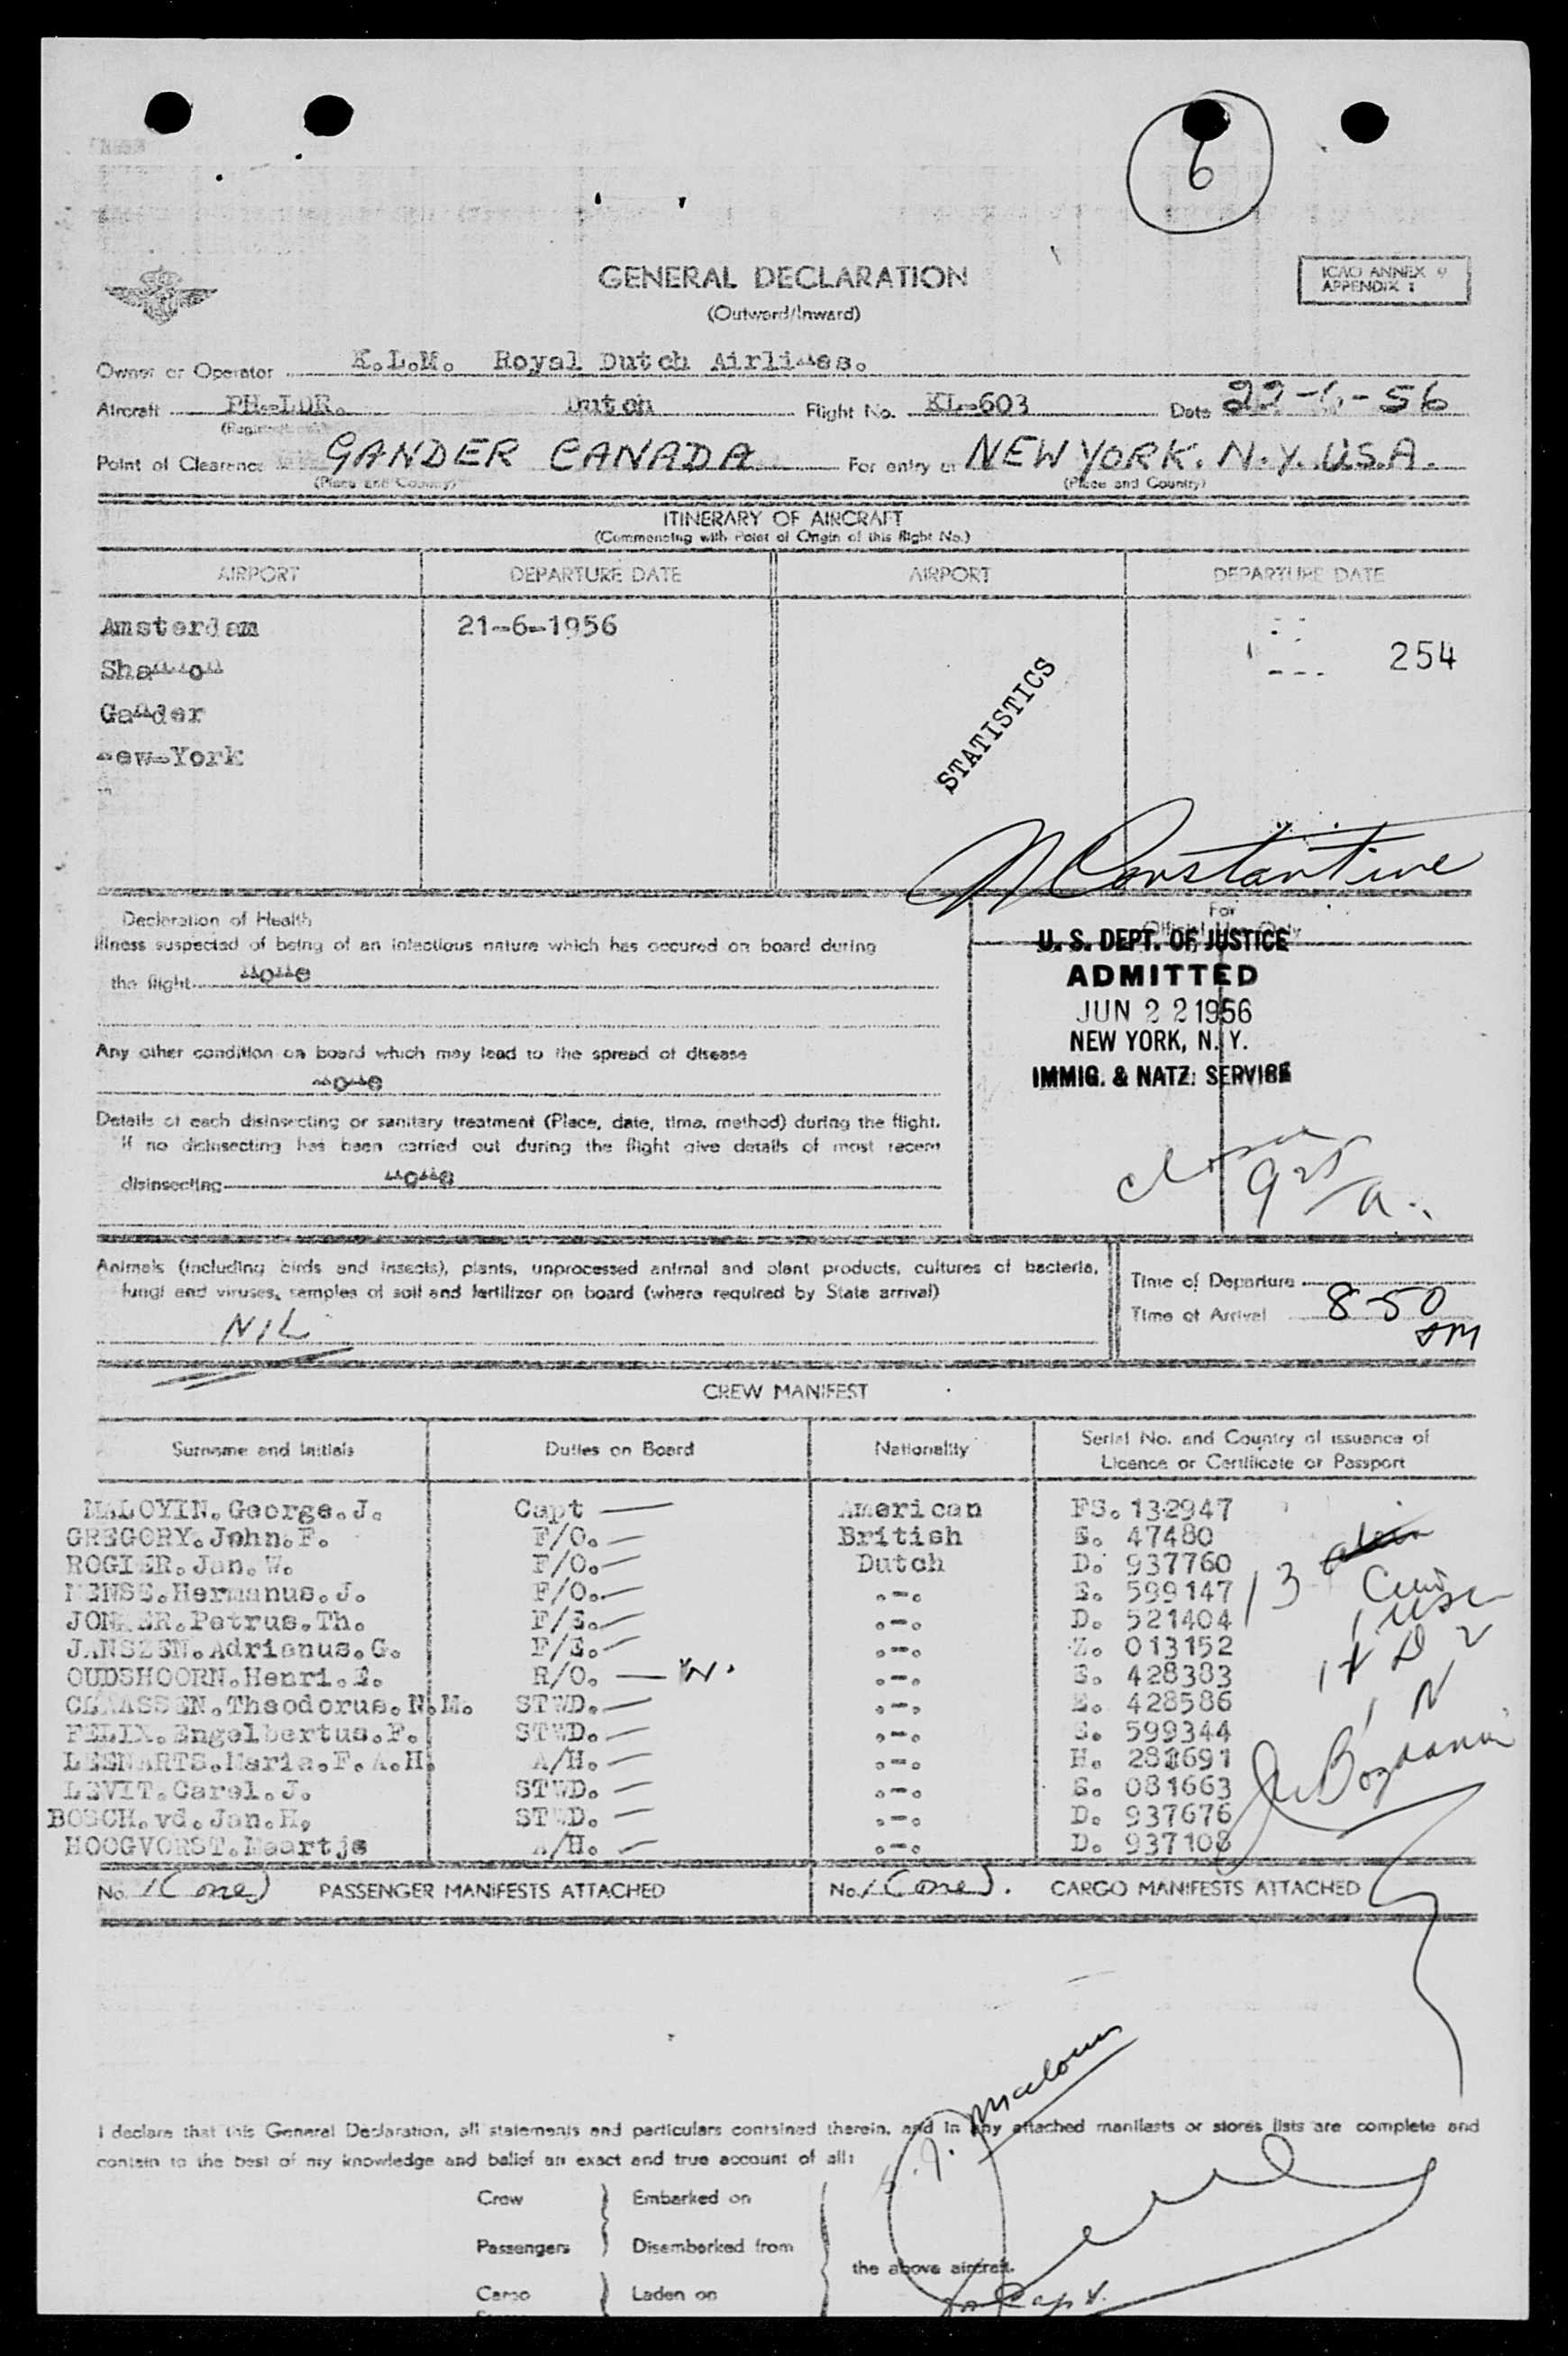 6
GENERAL DECLARATION
(Outward/Inward)
ICAO ANNEX 9
APPENDIX 1
Owner or Operator K.L.M. Royal Dutch Airlines.
Aircraft PH-LDR. Dutch Flight No. KL-603 Date 22-6-56
Point of Clearance GANDER CANADA For entry at NEW YORK. N.Y. U.S.A.
(Place and Country) (Place and Country)
ITINERARY OF AIRCRAFT
(Commencing with Point of Origin of this flight No.)
AIRPORT DEPARTURE DATE AIRPORT DEPARTURE DATE
Amsterdam 21-6-1956
254
Shannon
Gander
New-York
STATISTICS
N Constantine
Declaration of Health
For
Official Use Only
Illness suspected of being of an infectious nature which has occured on board during
the flight none
U. S. DEPT. OF JUSTICE
ADMITTED
JUN 22 1956
NEW YORK, N. Y.
IMMIG. & NATZ. SERVICE
Any other condition on board which may lead to the spread of disease
none
Details of each disinsecting or sanitary treatment (Place, date, time, method) during the flight.
If no disinsecting has been carried out during the flight give details of most recent
disinsecting none
925 a.
Animals (including birds and insects), plants, unprocessed animal and plant products, cultures of bacteria,
fungi and viruses, samples of soil and fertilizer on board (where required by State arrival)
NIL
Time of Departure
Time of Arrival 8-50
AM
CREW MANIFEST
Surname and Initials Duties on Board Nationality Serial No. and Country of issuance of
Licence or Certificate or Passport
MALOYIN.George.J. Capt American FS. 132947
GREGORY.John.F. F/O. British S. 47480
ROGIER.Jan.W. F/O. Dutch D. 937760
MENSE.Hermanus.J. F/O. .-. S. 599147
JONKER.Petrus.Th. F/E. .-. D. 521404
JANSZEN.Adrianus.G. F/E. .-. Z. 013152
OUDSHOORN.Henri.E. R/O. .-. S. 428383
CLAASSEN.Theodorus.N.M. STWD. .-. E. 428586
FELIX.Engelbertus.P. STWD. .-. S. 599344
LESNARTS.Maria.F.A.H. A/H. .-. H. 281691
LEVIT.Carel.J. STWD. .-. S. 081663
BOSCH.vd.Jan.H. STWD. .-. D. 937676
HOOGVORST.Maartje A/H. .-. D. 937108
13
No. 1 (one) PASSENGER MANIFESTS ATTACHED No. 1 (one). CARGO MANIFESTS ATTACHED
I declare that this General Declaration, all statements and particulars contained therein, and in any attached manifests or stores lists are complete and
contain to the best of my knowledge and belief an exact and true account of all:
Crew Embarked on
Passengers Disembarked from
the above aircraft.
Cargo Laden on
Capt.